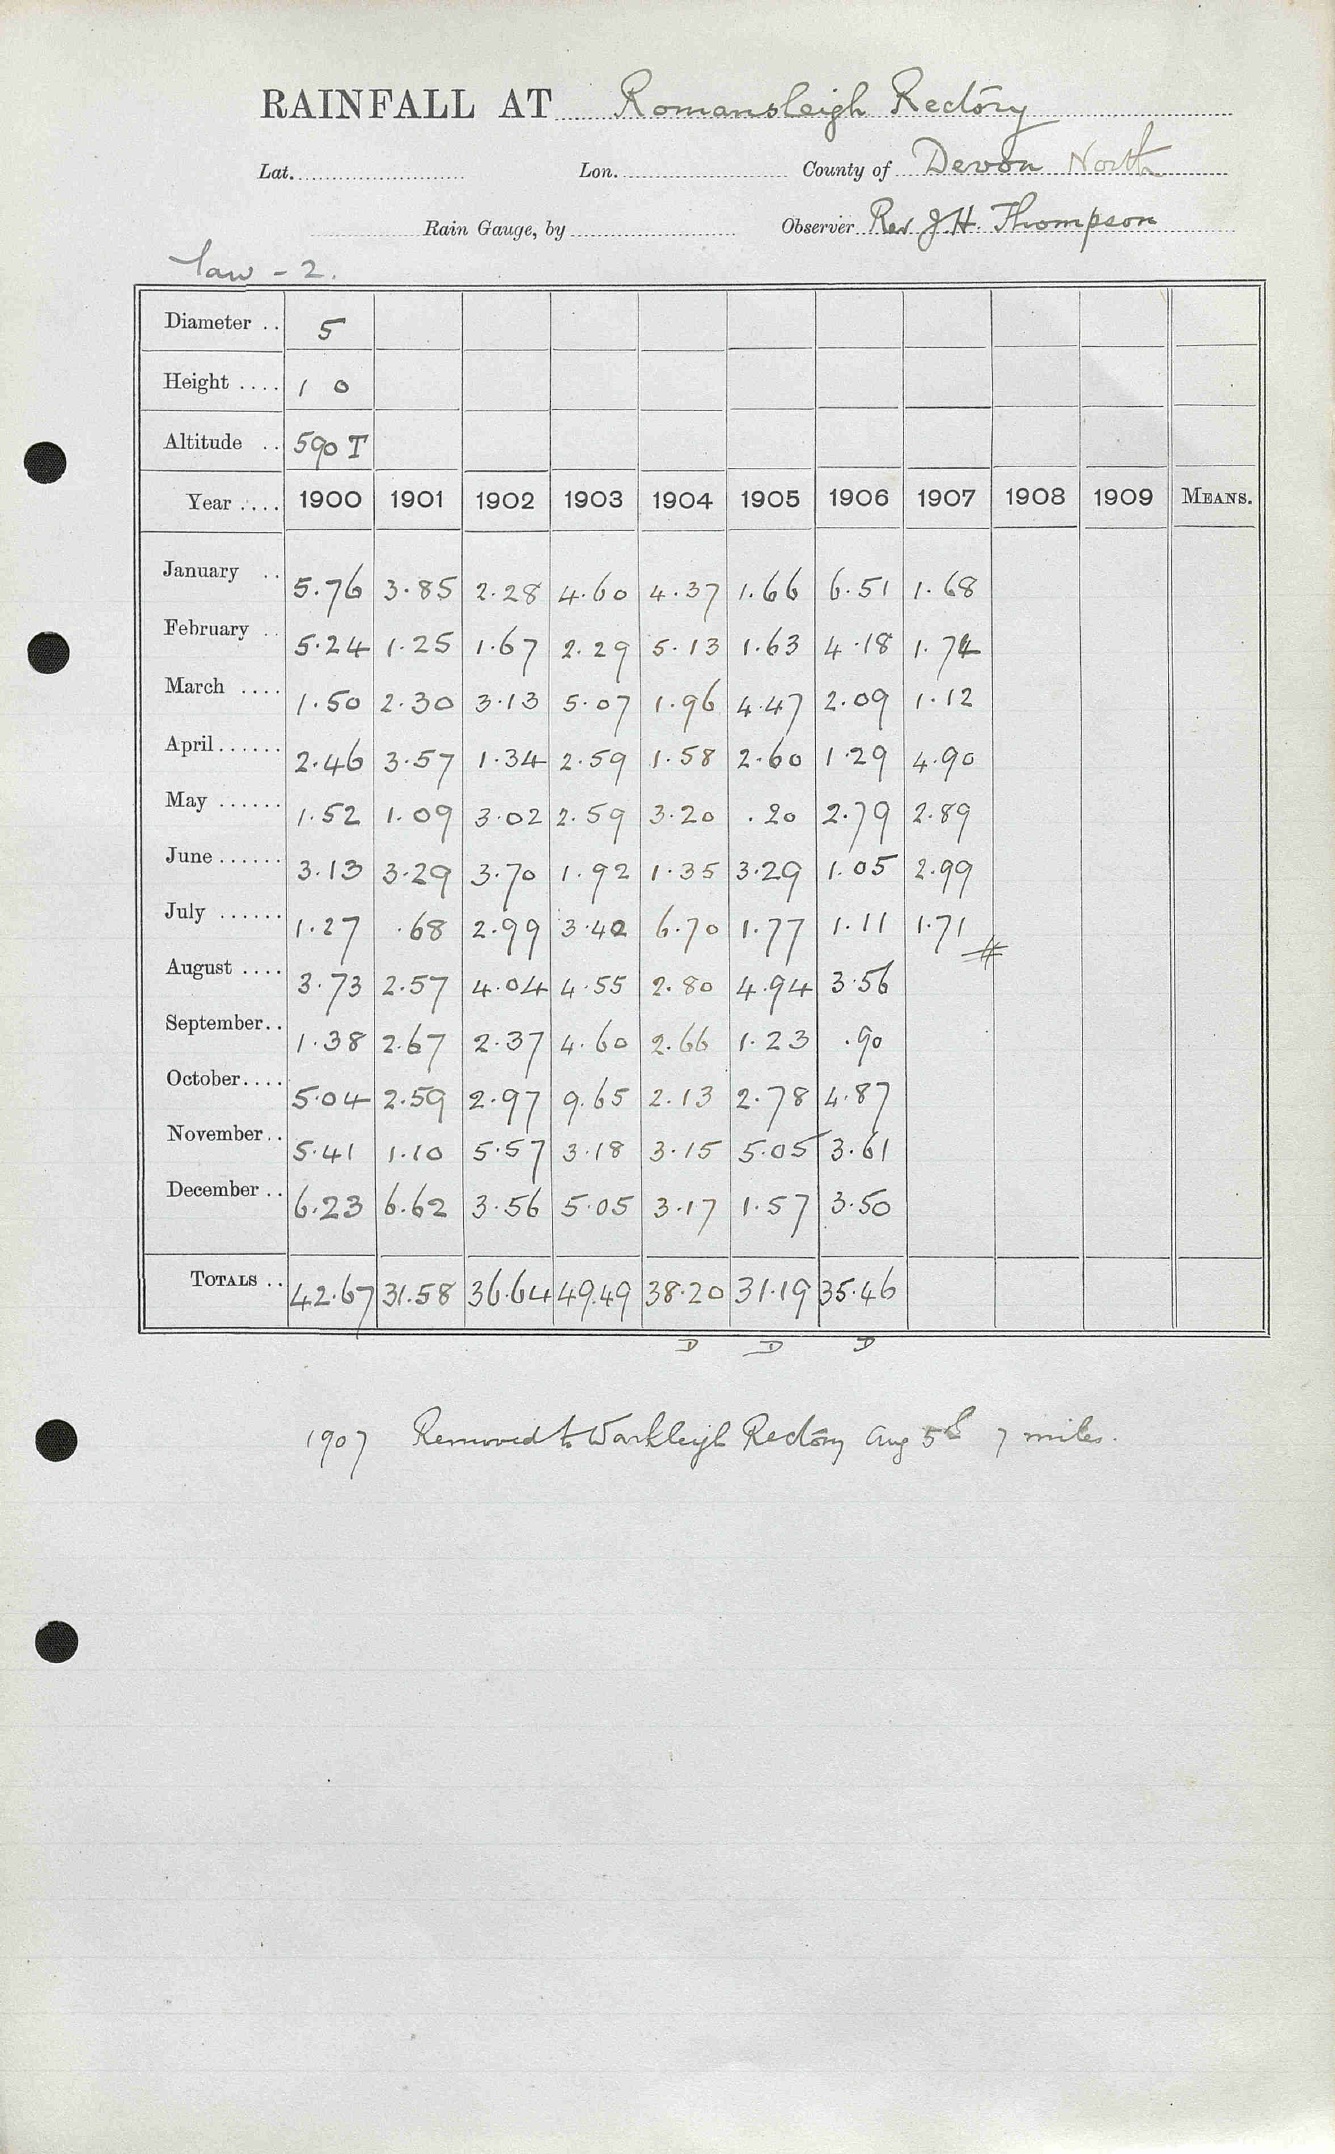 RAINFALL AT Romansleigh Rectory
Lat. Lon. County of Devon North
Rain Gauge, by Observer Rev J. H. Thompson
law - 2.
Diameter .. 5
Height .... 1 0
Altitude .. 590 T
Year .... 1900 1901 1902 1903 1904 1905 1906 1907 1908 1909 MEANS.
January .. 5.76 3.85 2.28 4.60 4.37 1.66 6.51 1.68
February .. 5.24 1.25 1.67 2.29 5.13 1.63 4.18 1.74
March .... 1.50 2.30 3.13 5.07 1.96 4.47 2.09 1.12
April ...... 2.46 3.57 1.34 2.59 1.58 2.60 1.29 4.90
May ...... 1.52 1.09 3.02 2.59 3.20 .20 2.79 2.89
June ...... 3.13 3.29 3.70 1.92 1.35 3.29 1.05 2.99
July ...... 1.27 .68 2.99 3.40 6.70 1.77 1.11 1.71
August .... 3.73 2.57 4.04 4.55 2.80 4.94 3.56
September.. 1.38 2.67 2.37 4.60 2.66 1.23 .90
October.... 5.04 2.59 2.97 9.65 2.13 2.78 4.87
November.. 5.41 1.10 5.57 3.18 3.15 5.05 3.61
December .. 6.23 6.62 3.56 5.05 3.17 1.57 3.50
TOTALS .. 42.67 31.58 36.64 49.49 38.20 31.19 35.46
D D D
1907 Removed to Warkleigh Rectory Aug 5th 7 miles.